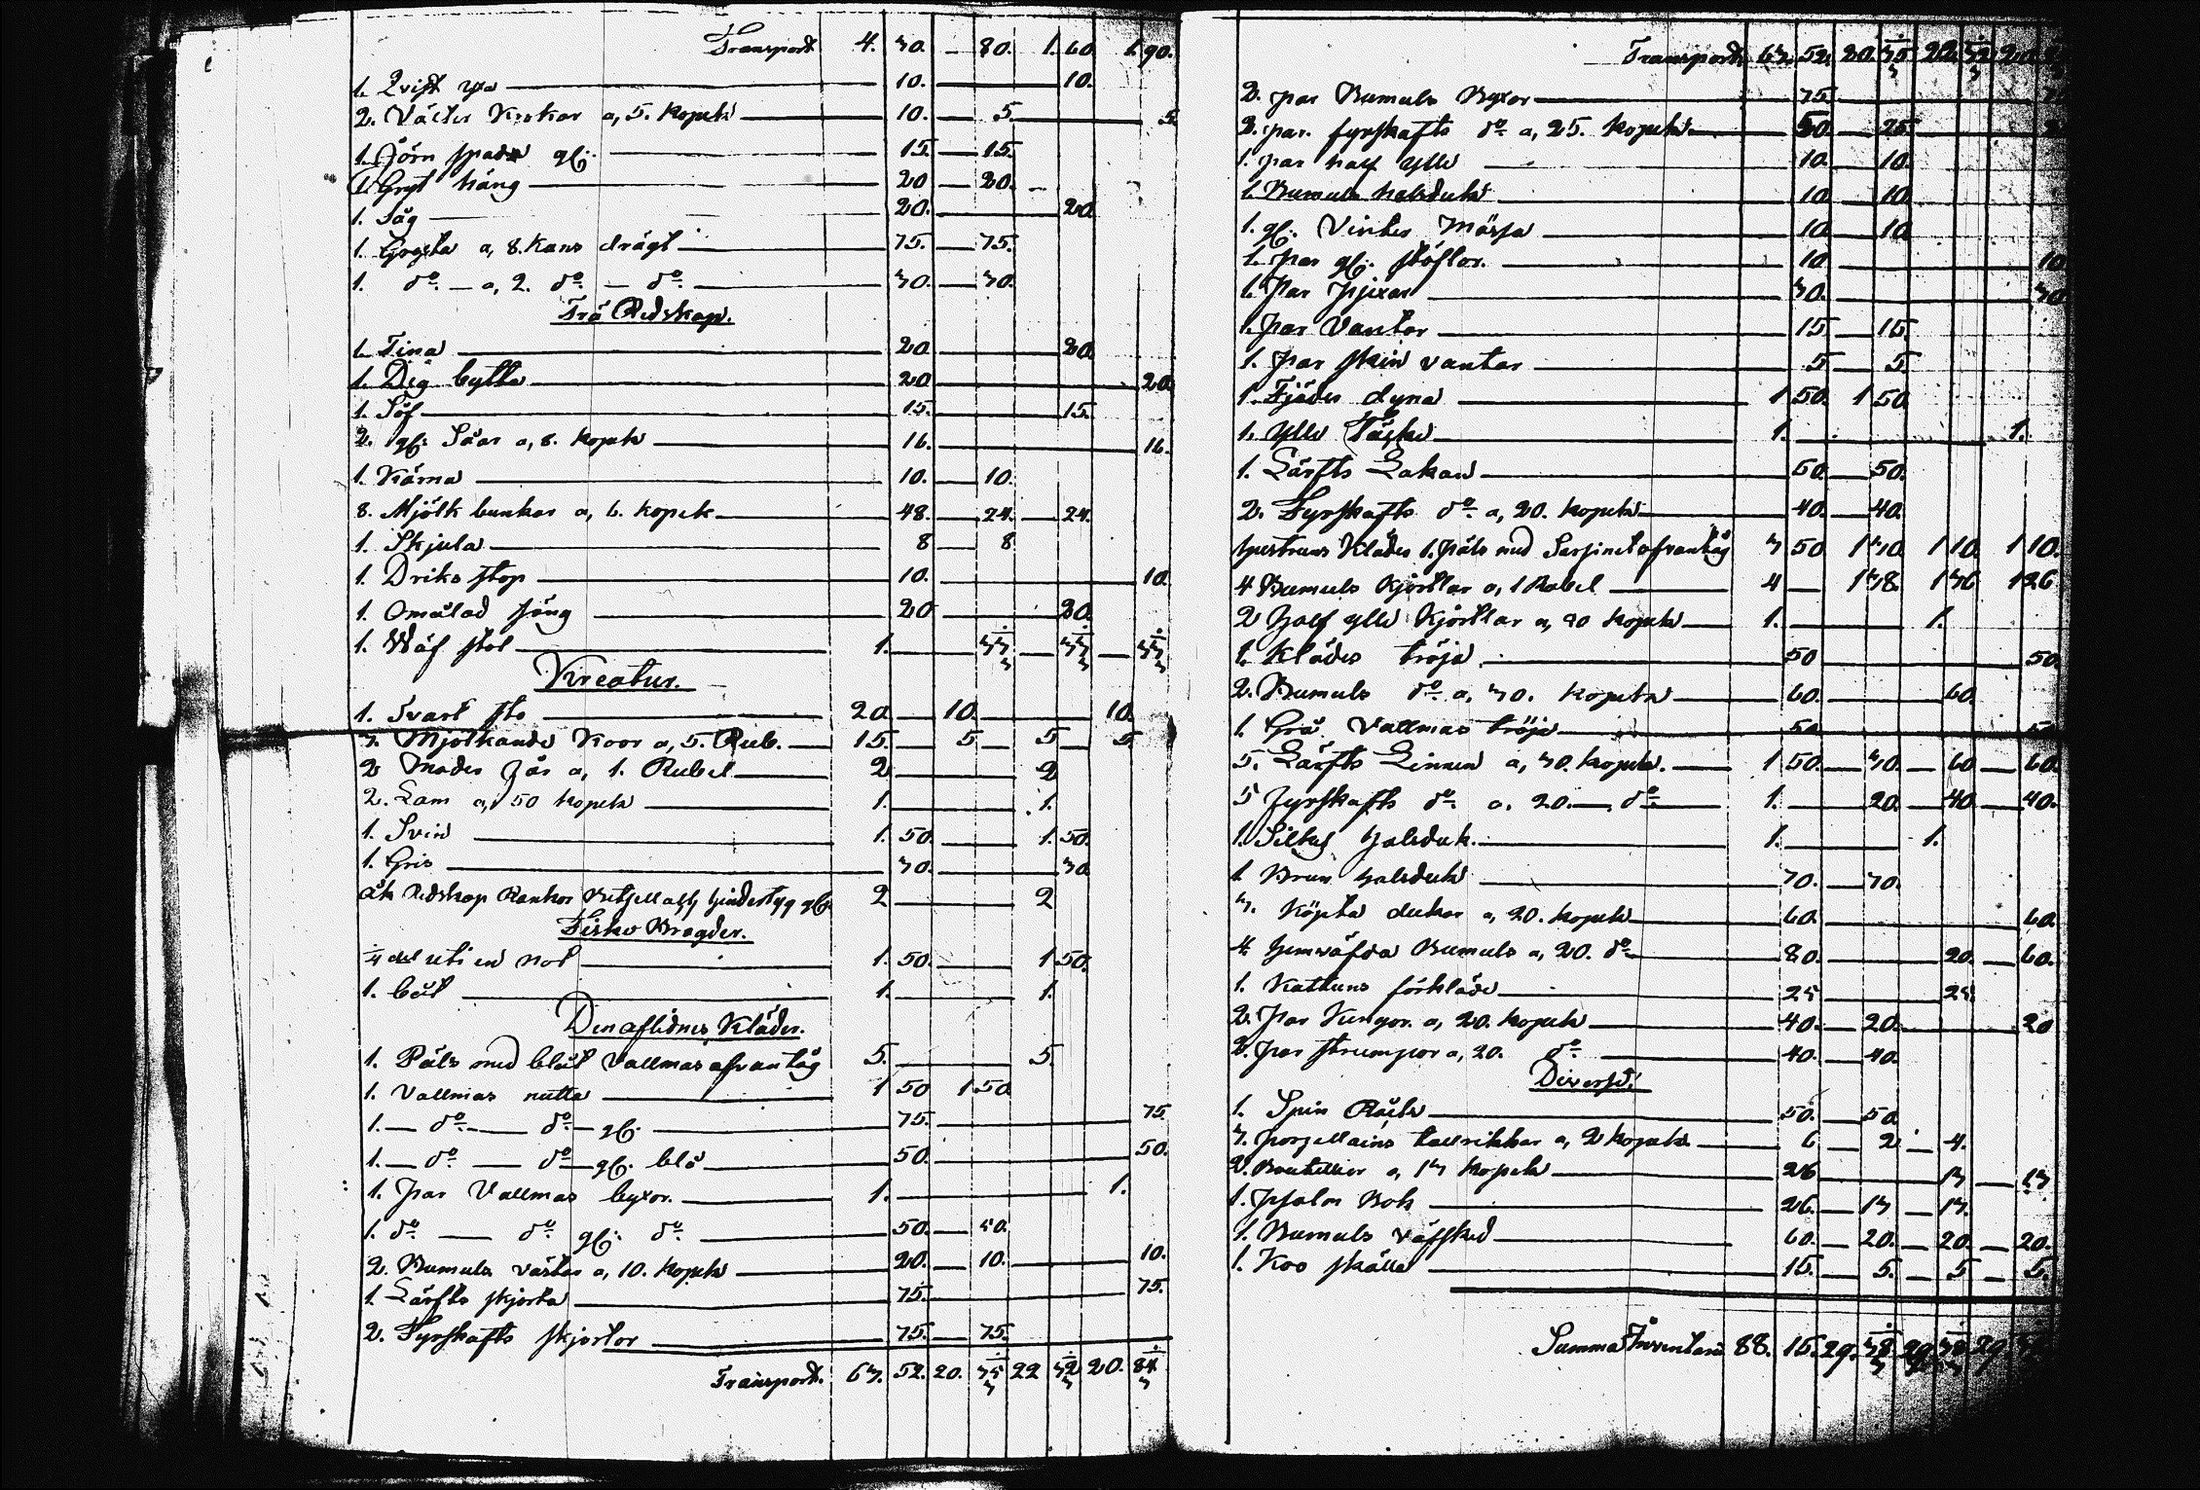 Transport 4. 30. — 80. 1. 60 1. 90.
1. Qvist yxa — 10. — 10.
2. Väder Krokar a, 5. Kopek — 10. — 5. — 5.
1. Jörn spade gl: — 15. — 15.
1. Gryt häng — 20 — 20.
1. Såg — 20. — 20
1. Gryta a, 8. Kans drägt — 75. — 75.
1. do — a, 2. do — do — 30. — 30.
Trä Redskap.
1. Tina — 20 — 20
1. Dig bytta — 20 — 20.
1. Söf — 15. — 15.
2. gl: Såar a, 8. Kopek — 16. — 16.
1. Kärna — 10. — 10.
8. Mjölk bunkar a, 6. Kopek — 48. — 24. — 24.
1. Skjula — 8 — 8
1. Driks stop — 10. — 10.
1. Omålad säng — 20 — 20.
1. Wäf stol — 1. — 33 — 33 — 33
Kreatur.
1. Svart sto — 20. — 10. — 10.
3. Mjölkande Koor a, 5. Rub. — 15. — 5 — 5 — 5
2 Moder får a, 1. Rubel — 2 — 2
2. Lam a, 50 Kopek — 1. — 1.
1. Svin — 1. 50. — 1. 50.
1. Gris — 30. — 30
Åk Redskap Rankor gl: 2 — 2
Fiske Bragder.
1/4 del uti en Not — 1. 50. — 1 50.
1. båt — 1. — 1.
Den aflidnes Kläder.
1. Päls med blåt Vallmas afvantåg 5. — 5.
1. Vallmas mutta — 1 50 1 50
1. — do — do — gl: — 75. — 75
1. — do — do — gl: blå — 50. — 50.
1. par Vallmas byxor. — 1. — 1.
1. do — do gl: do — 50. — 50.
2. Bumuls västar a, 10. Kopek — 20. — 10. — 10.
1. Lärfts skjorta — 75. — 75.
2. Fyrskafts skjortor — 75. — 75.
Transport. 63. 52. 20. 35 22 32 20. 84
Transport. 63. 52. 20. 35 22. 52 20.
2. par Bumuls Byxor — 75
2. par. fyrskafts do a, 25. Kopek — 50. — 25.
1. par half ylle — 10. — 10.
1. Bumuls halsduk — 10 — 10.
1. gl: Vinter Mössa — 10 — 10
1. par gl: stöflor. — 10 — 10
1. par pjexor — 30. — 30
1. par Vantar — 15 — 15.
1. par skin vantar — 5 — 5.
1. Fjäder dyna — 1 50. 1 50
1. Ylle Täcke — 1. — 1.
1. Lärfts Lakan — 50. — 50.
2. Fyrskafts do a, 20. Kopek — 40. — 40.
hustruns Kläder 1. päls med Sarsinet afvantåg 3 50 1 30 1 10. 1 10.
4 Bumuls Kjortlar a, 1 Rubel — 4 — 1 38. 1 36 1 26
2 Half ylle Kjortlar a, 50 Kopek — 1. — 1.
1. Klädes tröja — 50 — 50.
2. Bumuls do a, 30. Kopek — 60. — 60.
1. Grå Vallmas tröja — 50 — 50
5. Lärfts Linnen a, 30. Kopek. — 1 50. — 30. — 60 — 60.
5 Fyrskafts do a. 20. — do — 1. — 20. — 40 — 40.
1. Silkes halsduk. — 1. — 1.
1 Brun halsduk — 30. — 30.
3. Köpta dukar a, 20. Kopek — 60. — 60.
4. hemväfda Bumuls a, 20. do — 80. — 20. — 60.
1. Kattuns förkläde — 25 — 25
2. Par Kängor. a, 20. Kopek — 40. — 20. — 20
2. par strumpor a, 20. do — 40. — 40.
Diverse:
1. Spin Råck — 50. — 50
3. porsellains tallrikkar a, 2 Kopek — 6 — 2 — 4.
2. Boutellior a, 13 Kopek — 26 — 13 — 13
1. Psalm Bok — 26. — 13 — 13.
1. Bumuls väfsked — 60. — 20. — 20. — 20.
1. Koo skälla — 15. — 5. — 5 — 5.
Summa Inventarie 88. 15. 29. 38 29 38 29